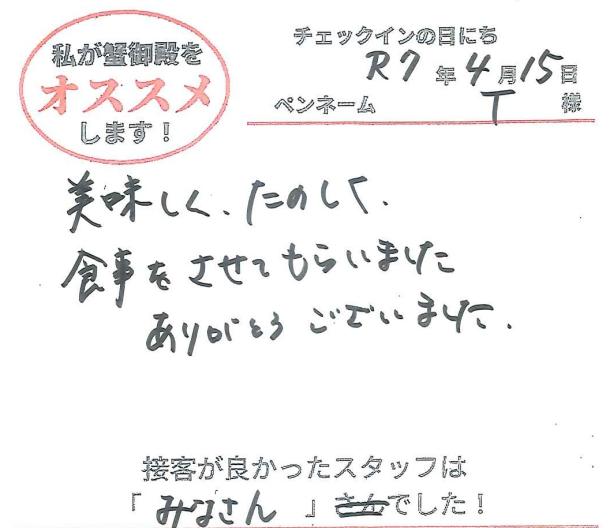 私が蟹御殿を
オススメ
します！
チェックインの日にち
R7年4月15日
ペンネーム T 様
美味しく、たのしく、
食事をさせてもらいました
ありがとうございました.
接客が良かったスタッフは
「 みなさん 」さんでした！